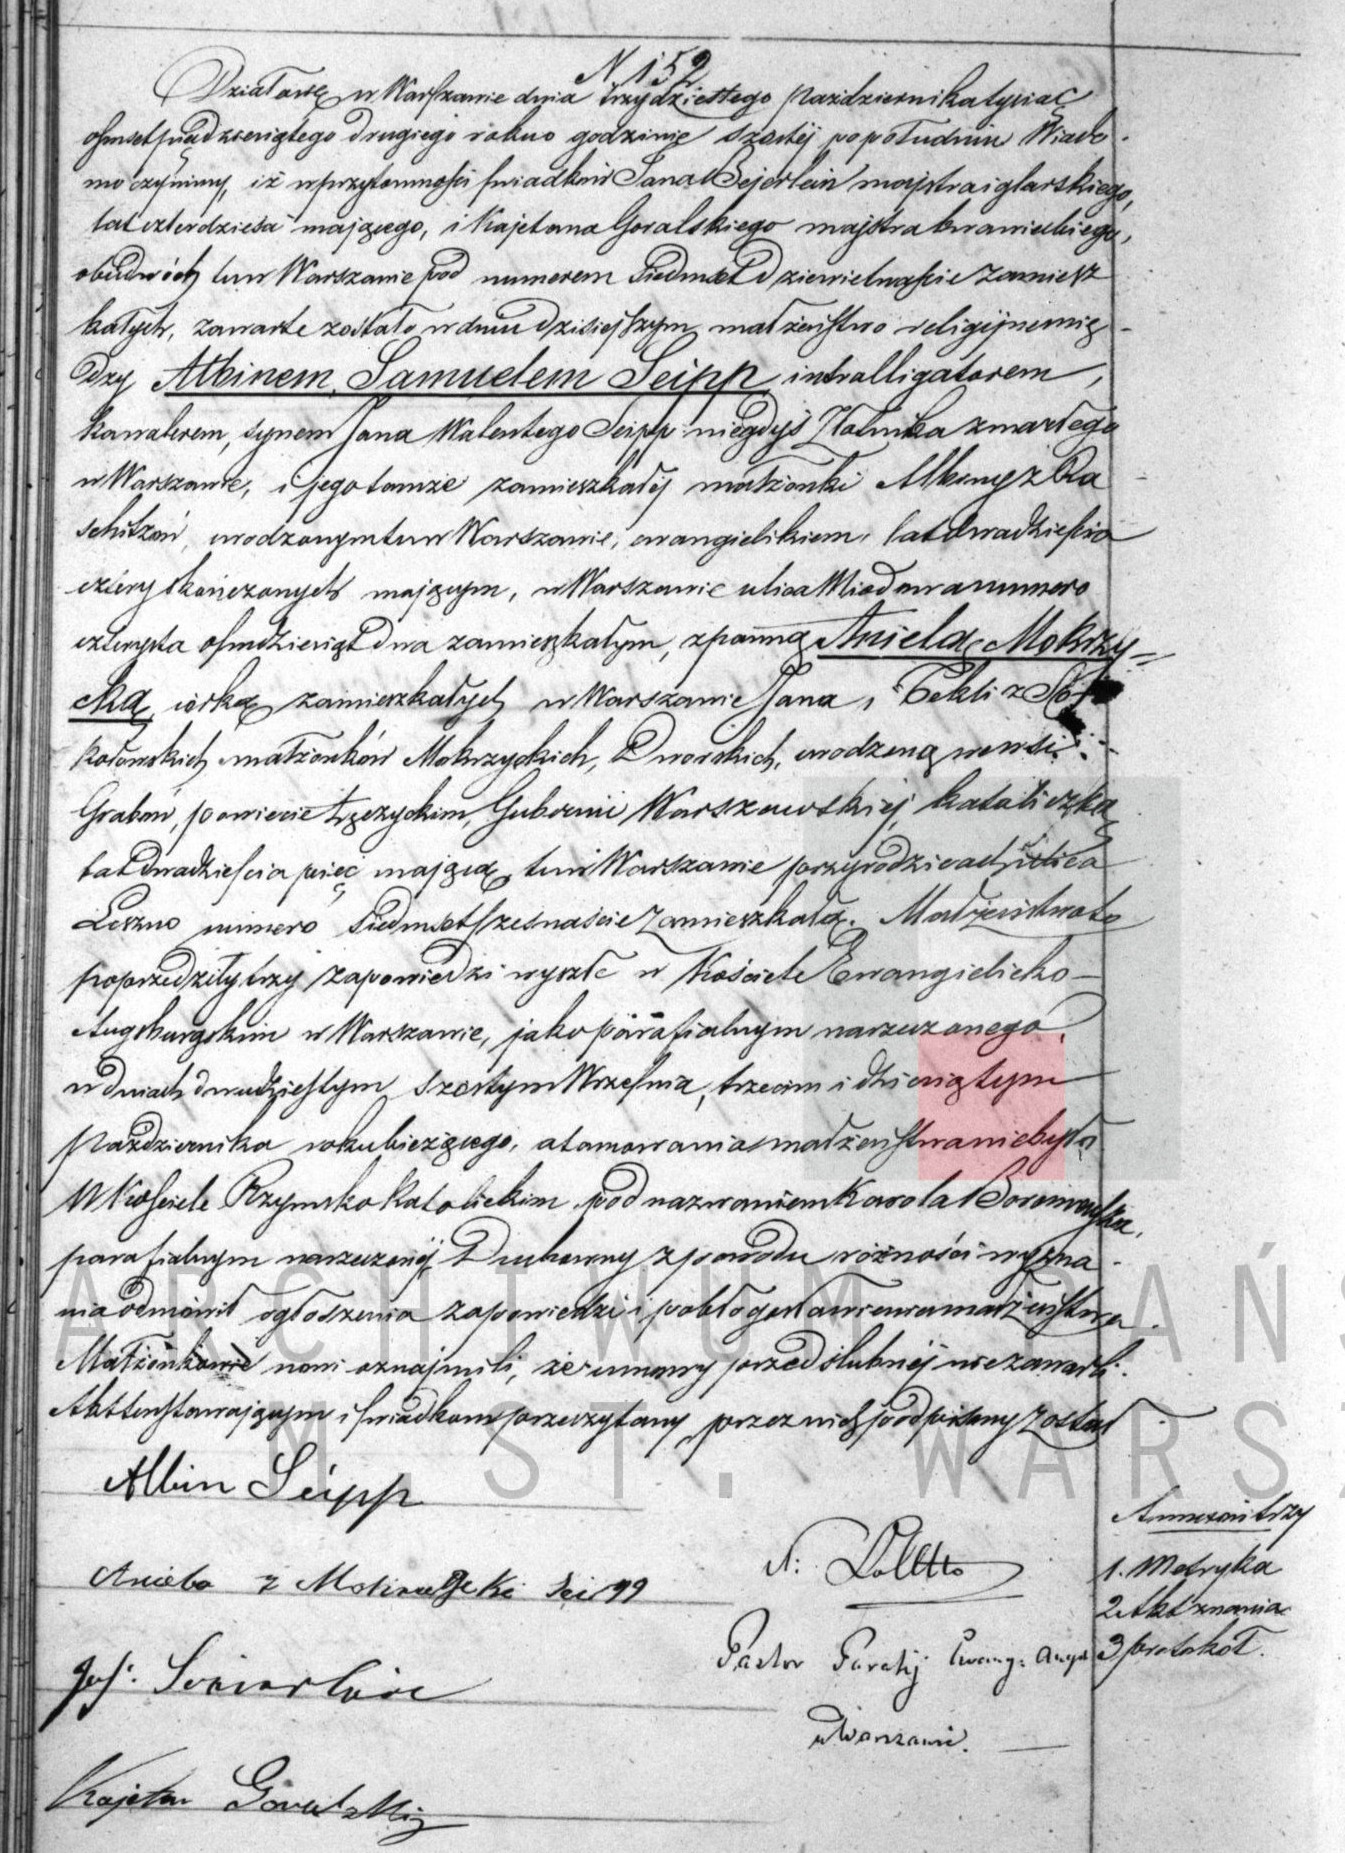 N 152
Działo się w Warszawie dnia trzydziestego Października tysiąc
ośmset pięćdziesiątego drugiego roku o godzinie szóstej po południu. Wiado-
mo czynimy, iż w przytomności świadków Jana Bejerlein majstra iglarskiego,
lat czterdzieści mającego, i Kajetana Goralskiego majstra krawieckiego,
obudwóch tu w Warszawie pod numerem siedmset dziewietnaście zamiesz
kałych, zawarte zostało w dniu dzisiejszym małżeństwo religijne mię-
dzy Albinem Samuelem Seipp intralligatorem,
kawalerem, synem Jana Walentego Seipp niegdyś Złotnika zmarłego
w Warszawie, i jego tamże zamieszkałej małżonki Albiny z Ra
schitzów, urodzonym tu w Warszawie, ewangielikiem, lat dwadzieścia
cztery skończonych mającym, w Warszawie ulica Miodowa numero
czterysta ośmdziesiąt dwa zamieszkałym, z panną Anielą Mokrzy-
cką, córką zamieszkałych w Warszawie Jana i Tekli z
kołowskich małżonków Mokrzyckich, Dworskich, urodzoną we wsi
Grabów, powiecie Łęczyckim, Gubernii Warszawskiej, katoliczką
lat dwadzieścia pięć mającą, tu w Warszawie przy rodzicach ulica
Leszno numero siedmset szesnaście zamieszkałą. Małżeństwo to
poprzedziły trzy zapowiedzi wyszłe w Kościele Ewangielicko-
Augsburgskim w Warszawie, jako parafialnym narzeczonego,
w dniach dwudziestym szóstym Września, trzecim i dziewiątym
Października roku bieżącego, a tamowania małżeństwa nie było
W Kościele Rzymsko Katolickim pod nazwaniem Karola Boromeusza,
parafialnym narzeczonej Duchowny z powodu różności wyzna-
nia odmówił ogłoszenia zapowiedzi i pobłogosławienia małżeństwa.
Małżonkowie nowi oznajmili, że umowy przedślubnej nie zawarli.
Akt ten stawającym i świadkom przeczytany, przez nich podpisany został
Albin Seipp
Aniela z Mokrzyckich Seipp
Kajetan Goralski
Pastor Parafij Ewang: Augsb
w Warszawie.
Annexów trzy
1. Metryka
2 Akt znania
3 protokół.
ARCHIWUM PAŃS
M. ST. WARS